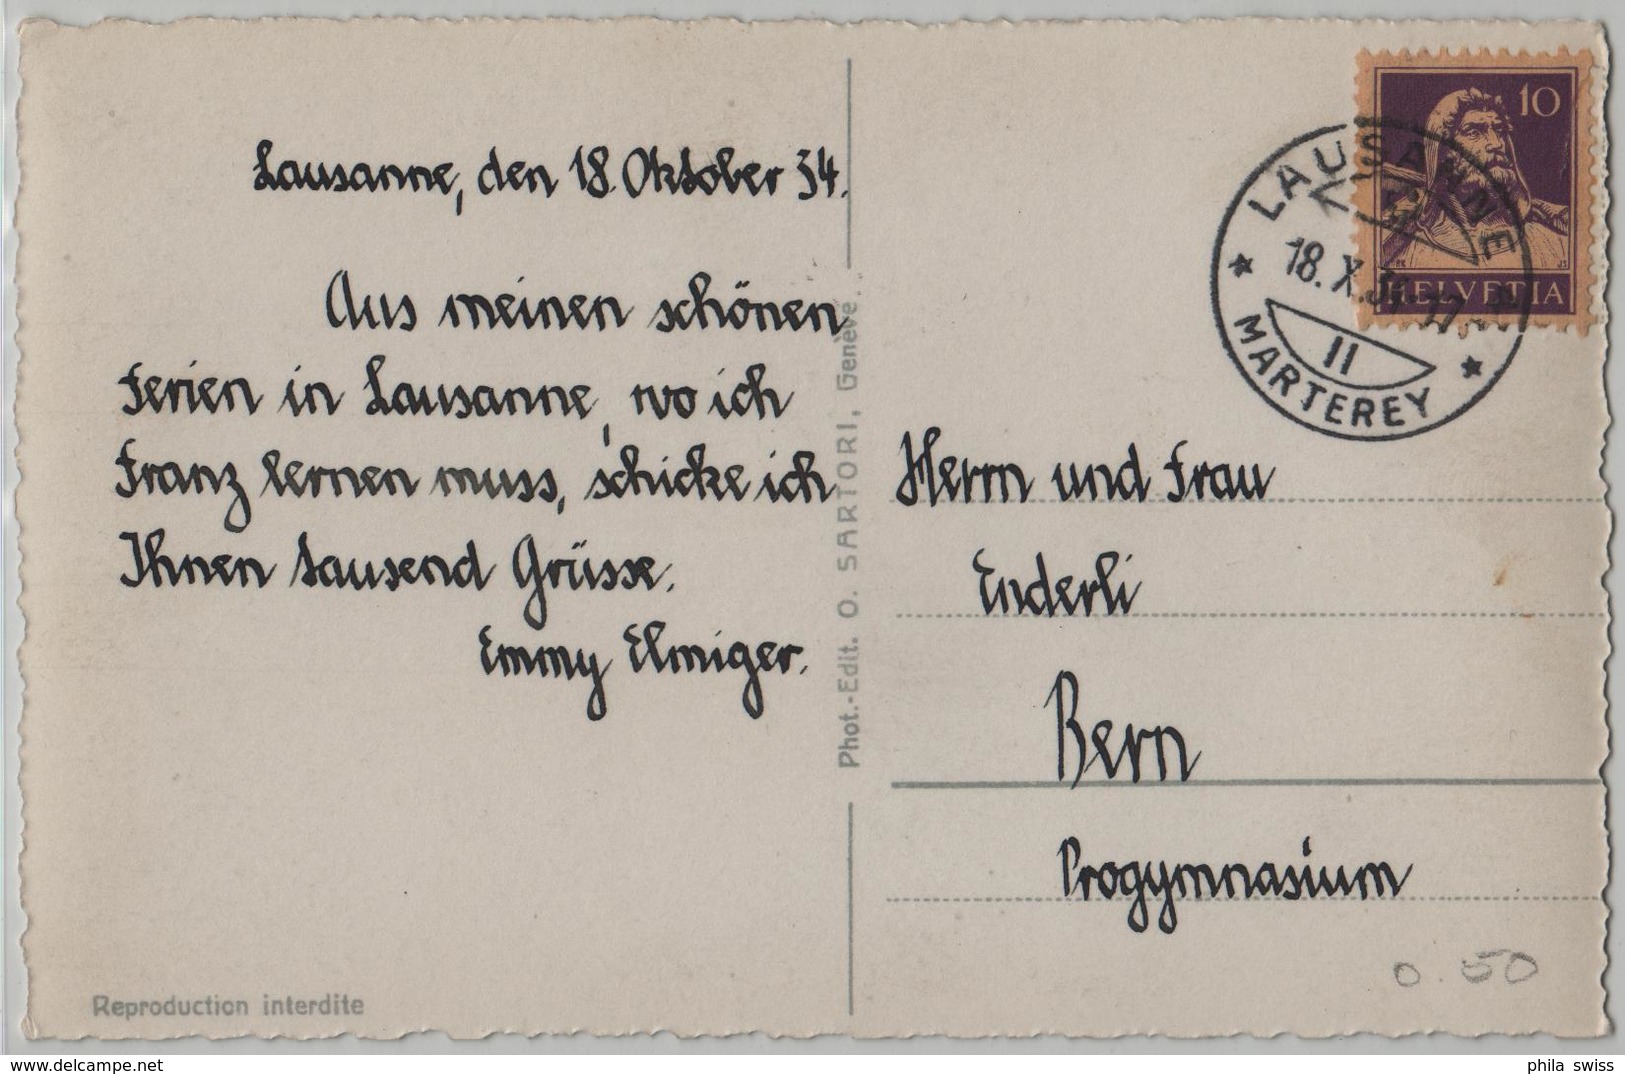 Lausanne, den 18. Oktober 34.
Aus meinen schönen
Ferien in Lausanne, wo ich
Franz lernen muss, schicke ich
Ihnen tausend Grüsse.
Emmy Elmiger.
Reproduction interdite
Phot.-Edit. O. SARTORI, Genève
10
HELVETIA
LAUSANNE
18. X. 34
II
MARTEREY
Herrn und Frau
Enderli
Bern
Progymnasium
0.50
delcampe.net
phila_swiss